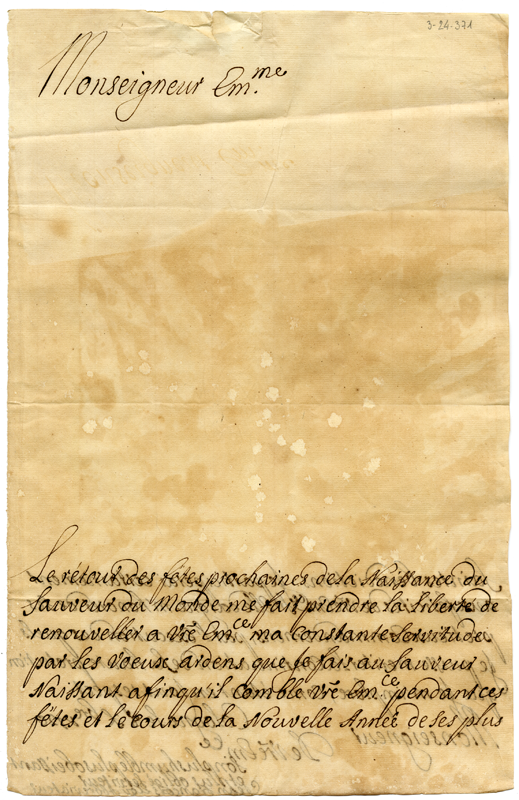 3-24-371
Monseigneur Em.me
Le retour des fétes prochaines de la Naissance du
Sauveur du Monde me fait prendre la liberté de
renouveller a Vrē Em.ce ma Constante Servitude
par les Voeux ardens que je fais au Sauveur
Naissant afinqu'il Comble Vrē Em.ce pendant ces
fétes et le cours de la Nouvelle Année de ses plus